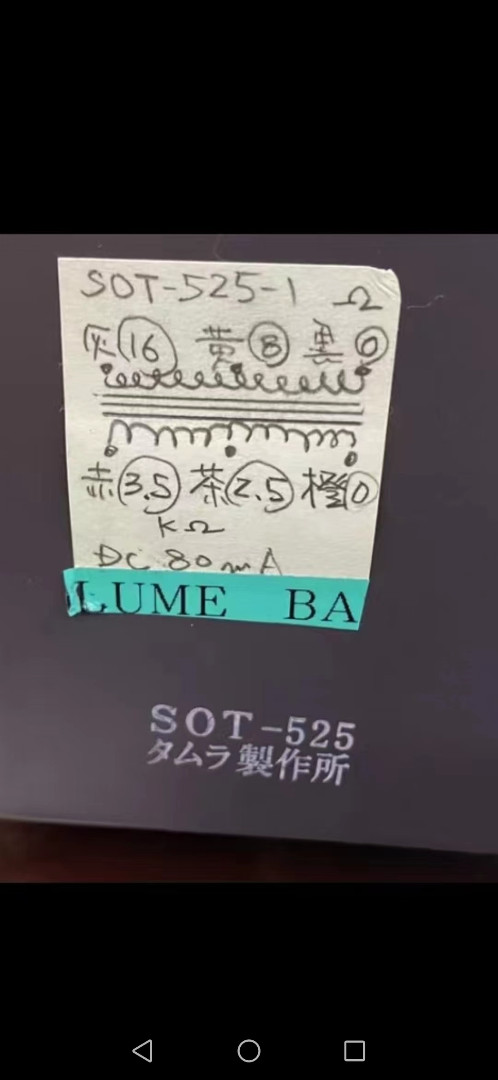 SOT-525-1 Ω
灰 16 黄 8 黒 0
赤 3.5 茶 2.5 橙 0
KΩ
DC 80mA
LUME BA
SOT-525
タムラ製作所